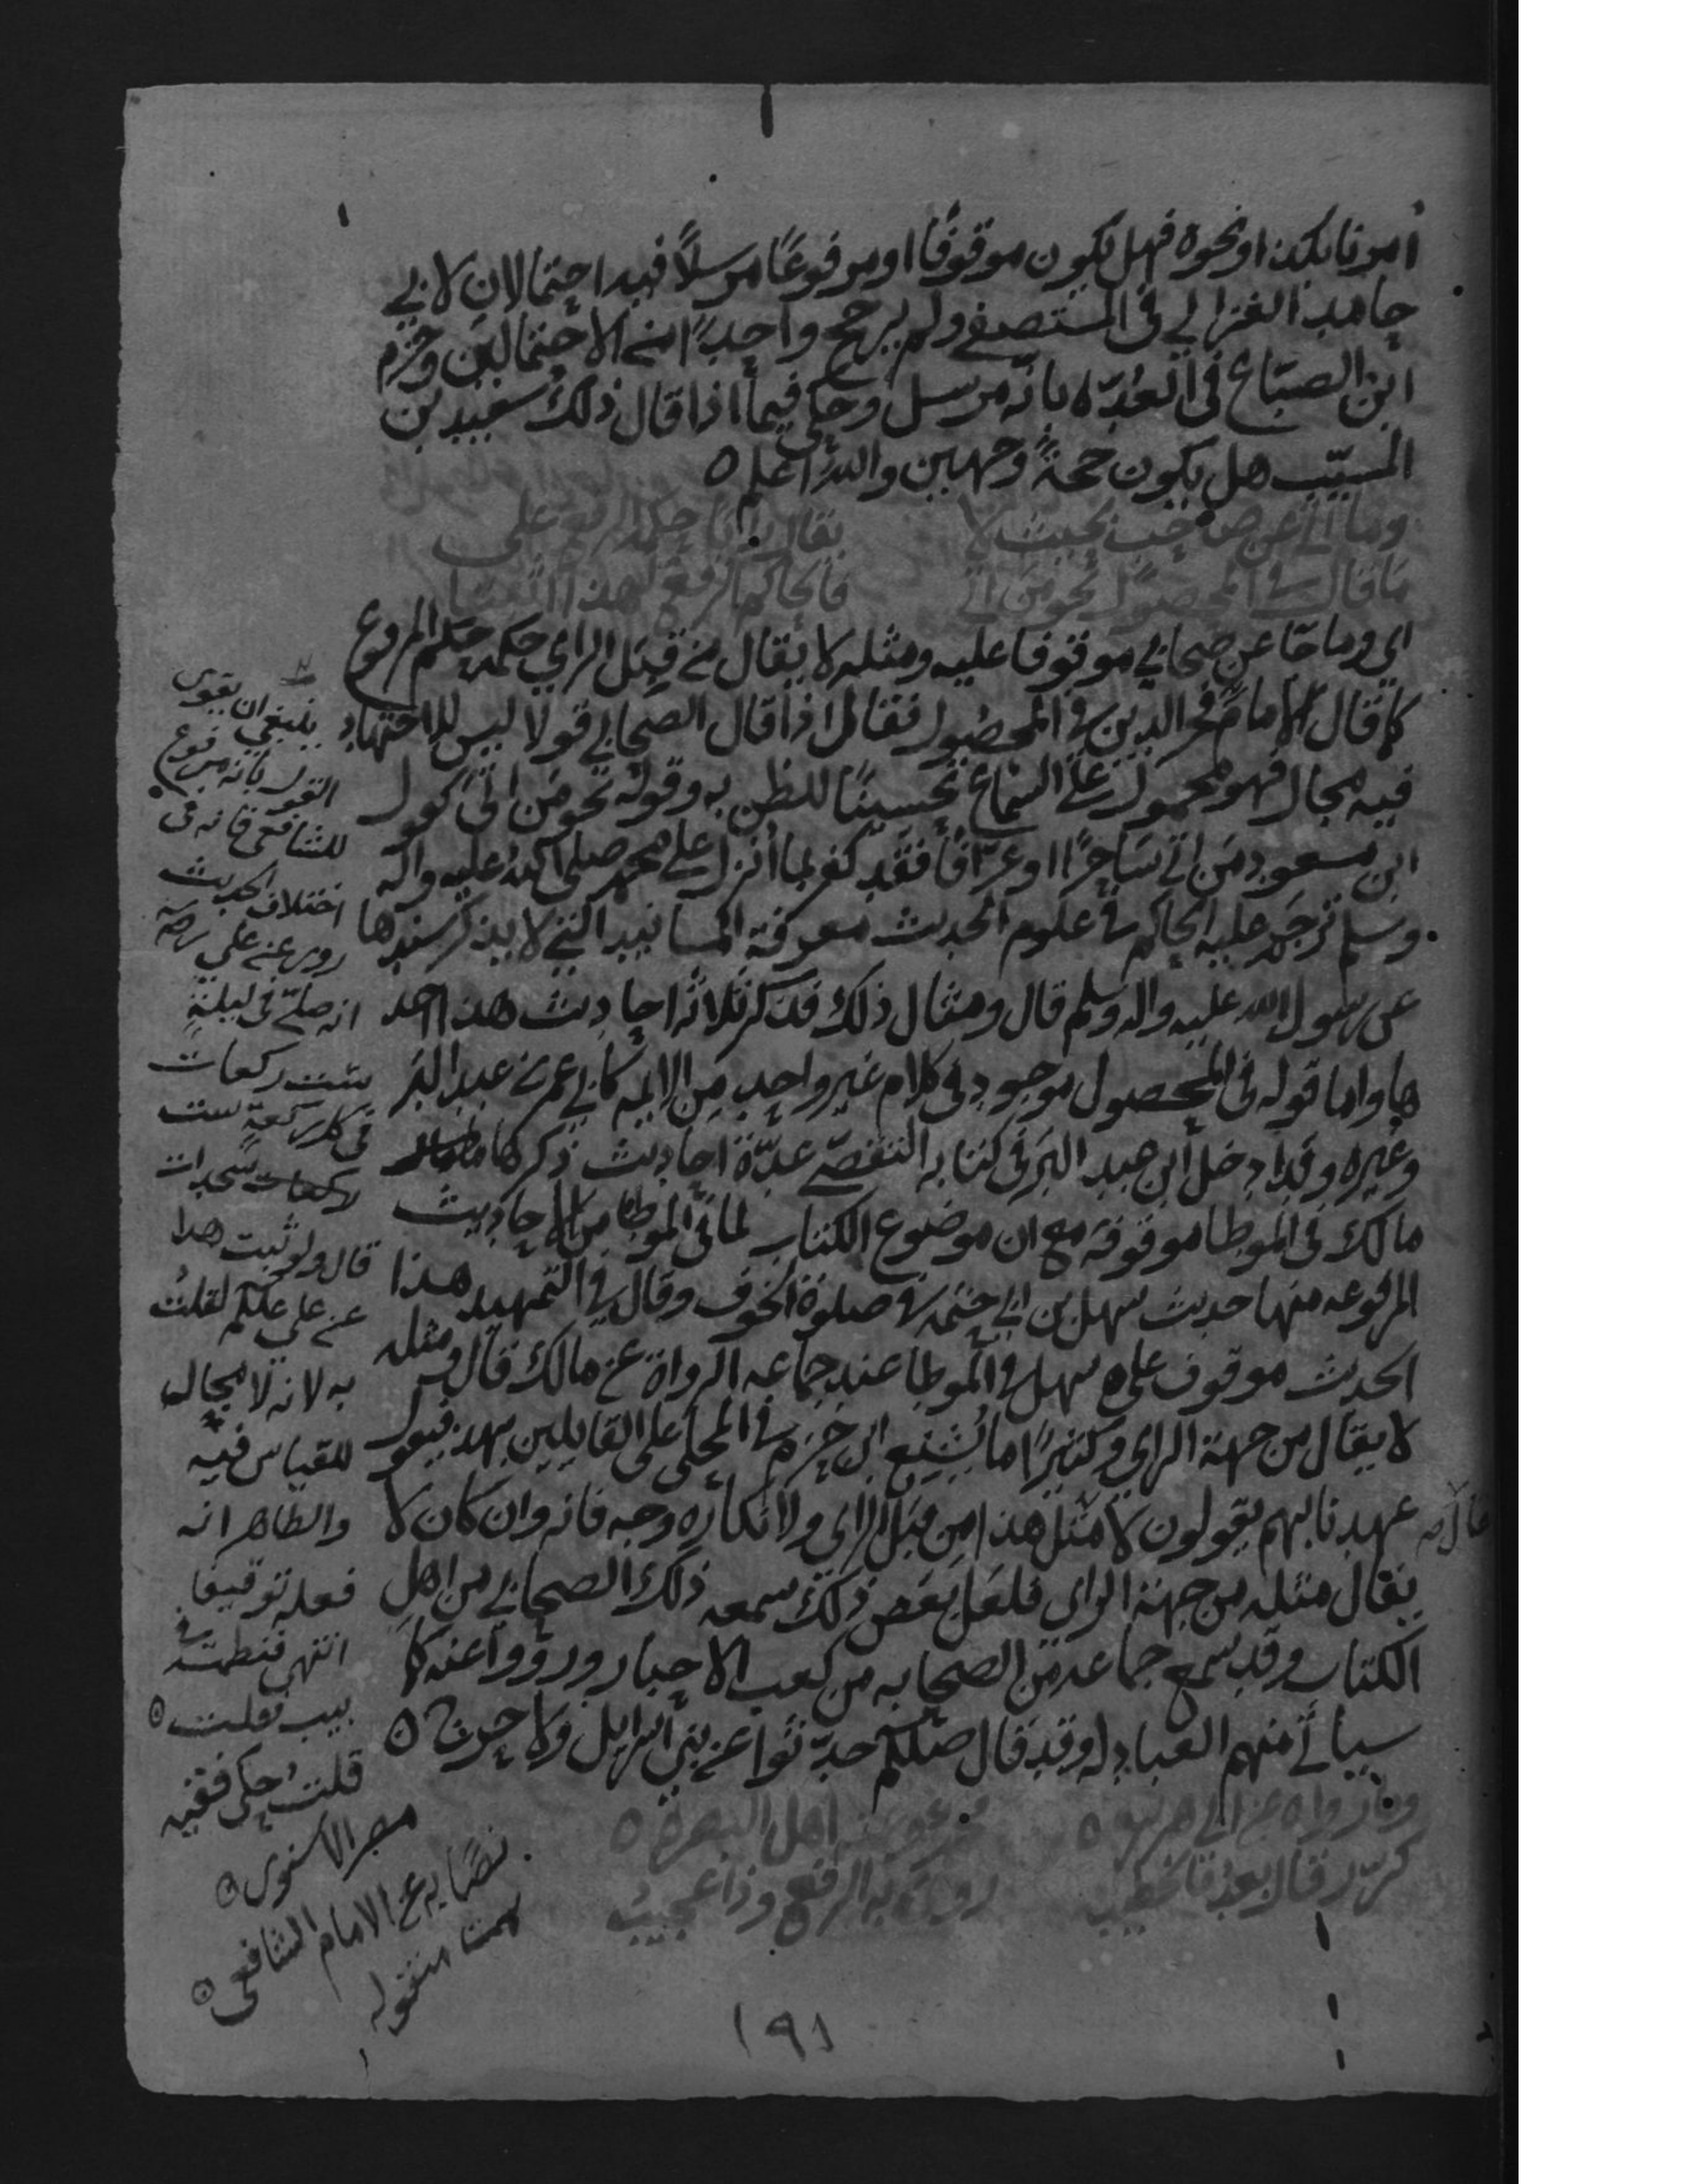 امرنا بكذا او نحوه فهل يكون موقوفًا او مرفوعًا مرسلًا فيه احتمالان لابي
حامد الغزالي في المستصفى ولم يرجح واحدًا من الاحتمالين وجزم
ابن الصبّاغ في العُدّه بانه مرسل وحكى فيما اذا قال ذلك سعيد بن
المسيّب هل يكون حجةً وجهين والله اعلم ٥
وما اتى عن صاحب بحيث لا يقال رايا حكمه الرفع على
ما قال في المحصول نحو من اتى فالحاكم الرفع لهذا اثبتا
اي وما جا عن صحابي موقوفا عليه ومثله لا يقال من قِبَل الراي حكمه حكم المرفوع
كما قال الامام فخر الدين في المحصول فقال اذا قال الصحابي قولا ليس للاجتهاد
فيه مجال فهو محمول على السماع تحسينًا للظن به وقوله نحو من اتى كقول
ابن مسعود من اتى ساحرًا او عرّافًا فقد كفر بما اُنزل على محمد صلى الله عليه واله
وسلم ترجم عليه الحاكم في علوم الحديث معرفة المسانيد التي لا يذكر سندها
عن رسول الله عليه واله وسلم قال ومثال ذلك فذكر ثلاثه احاديث هذا احد
ها واما قوله في المحصول موجود في كلام غير واحد من الايمه كابي عمر بن عبد البر
وغيره وقد ادخل ابن عبد البر في كتابه التقصّي عدّة احاديث ذكرها
مالك في الموطا موقوفه مع ان موضوع الكتاب لما في الموطا من الاحاديث
المرفوعه منها حديث سهل بن ابي حثمه في صلوة الخوف وقال في التمهيد هذا
الحديث موقوف على سهل في الموطا عند جماعه الرواة عن مالك قال ومثله
لا يقال من جهة الراي وكثيرًا ما يُشنِّع ابن حزم في المحلى على القايلين بهذا فيقول
عهدنا بهم يقولون لا يقال مثل هذا من قبل الراي ولانكاره وجه فانه وان كان لا
يقال مثله من جهة الراي فلعل بعض ذلك سمعه ذلك الصحابي من اهل
الكتاب وقد سمع جماعه من الصحابه من كعب الاحبار ورووا عنه كما
سياتي منهم العبادله وقد قال صلعم حدّثوا عن بني اسرايل ولا حرج ٥
وما رواه عن ابي هريره ٥ محمد وعنه اهل البصره ٥
كرّر قال بعدُ فالخطيب روى به الرفع وذا عجيبُ
ينبغي ان يقوى
القول بانه مرفوع
للشافعي فانه في
اختلاف الحديث
روى عن علي رضه
انه صلى في ليلةٍ
ست ركعات
في كل ركعةٍ ست
سجدات
قال ولو ثبت هذا
عن علي علكم لقلتُ
به لانه لا مجال
للقياس فيه
والظاهر انه
فعله توقيفا
انتهى
قلت حكى فقيه
مصر الاسنوى ٥
نصًا به عن الامام الشافعي ٥
تمت منقوله
١٩١